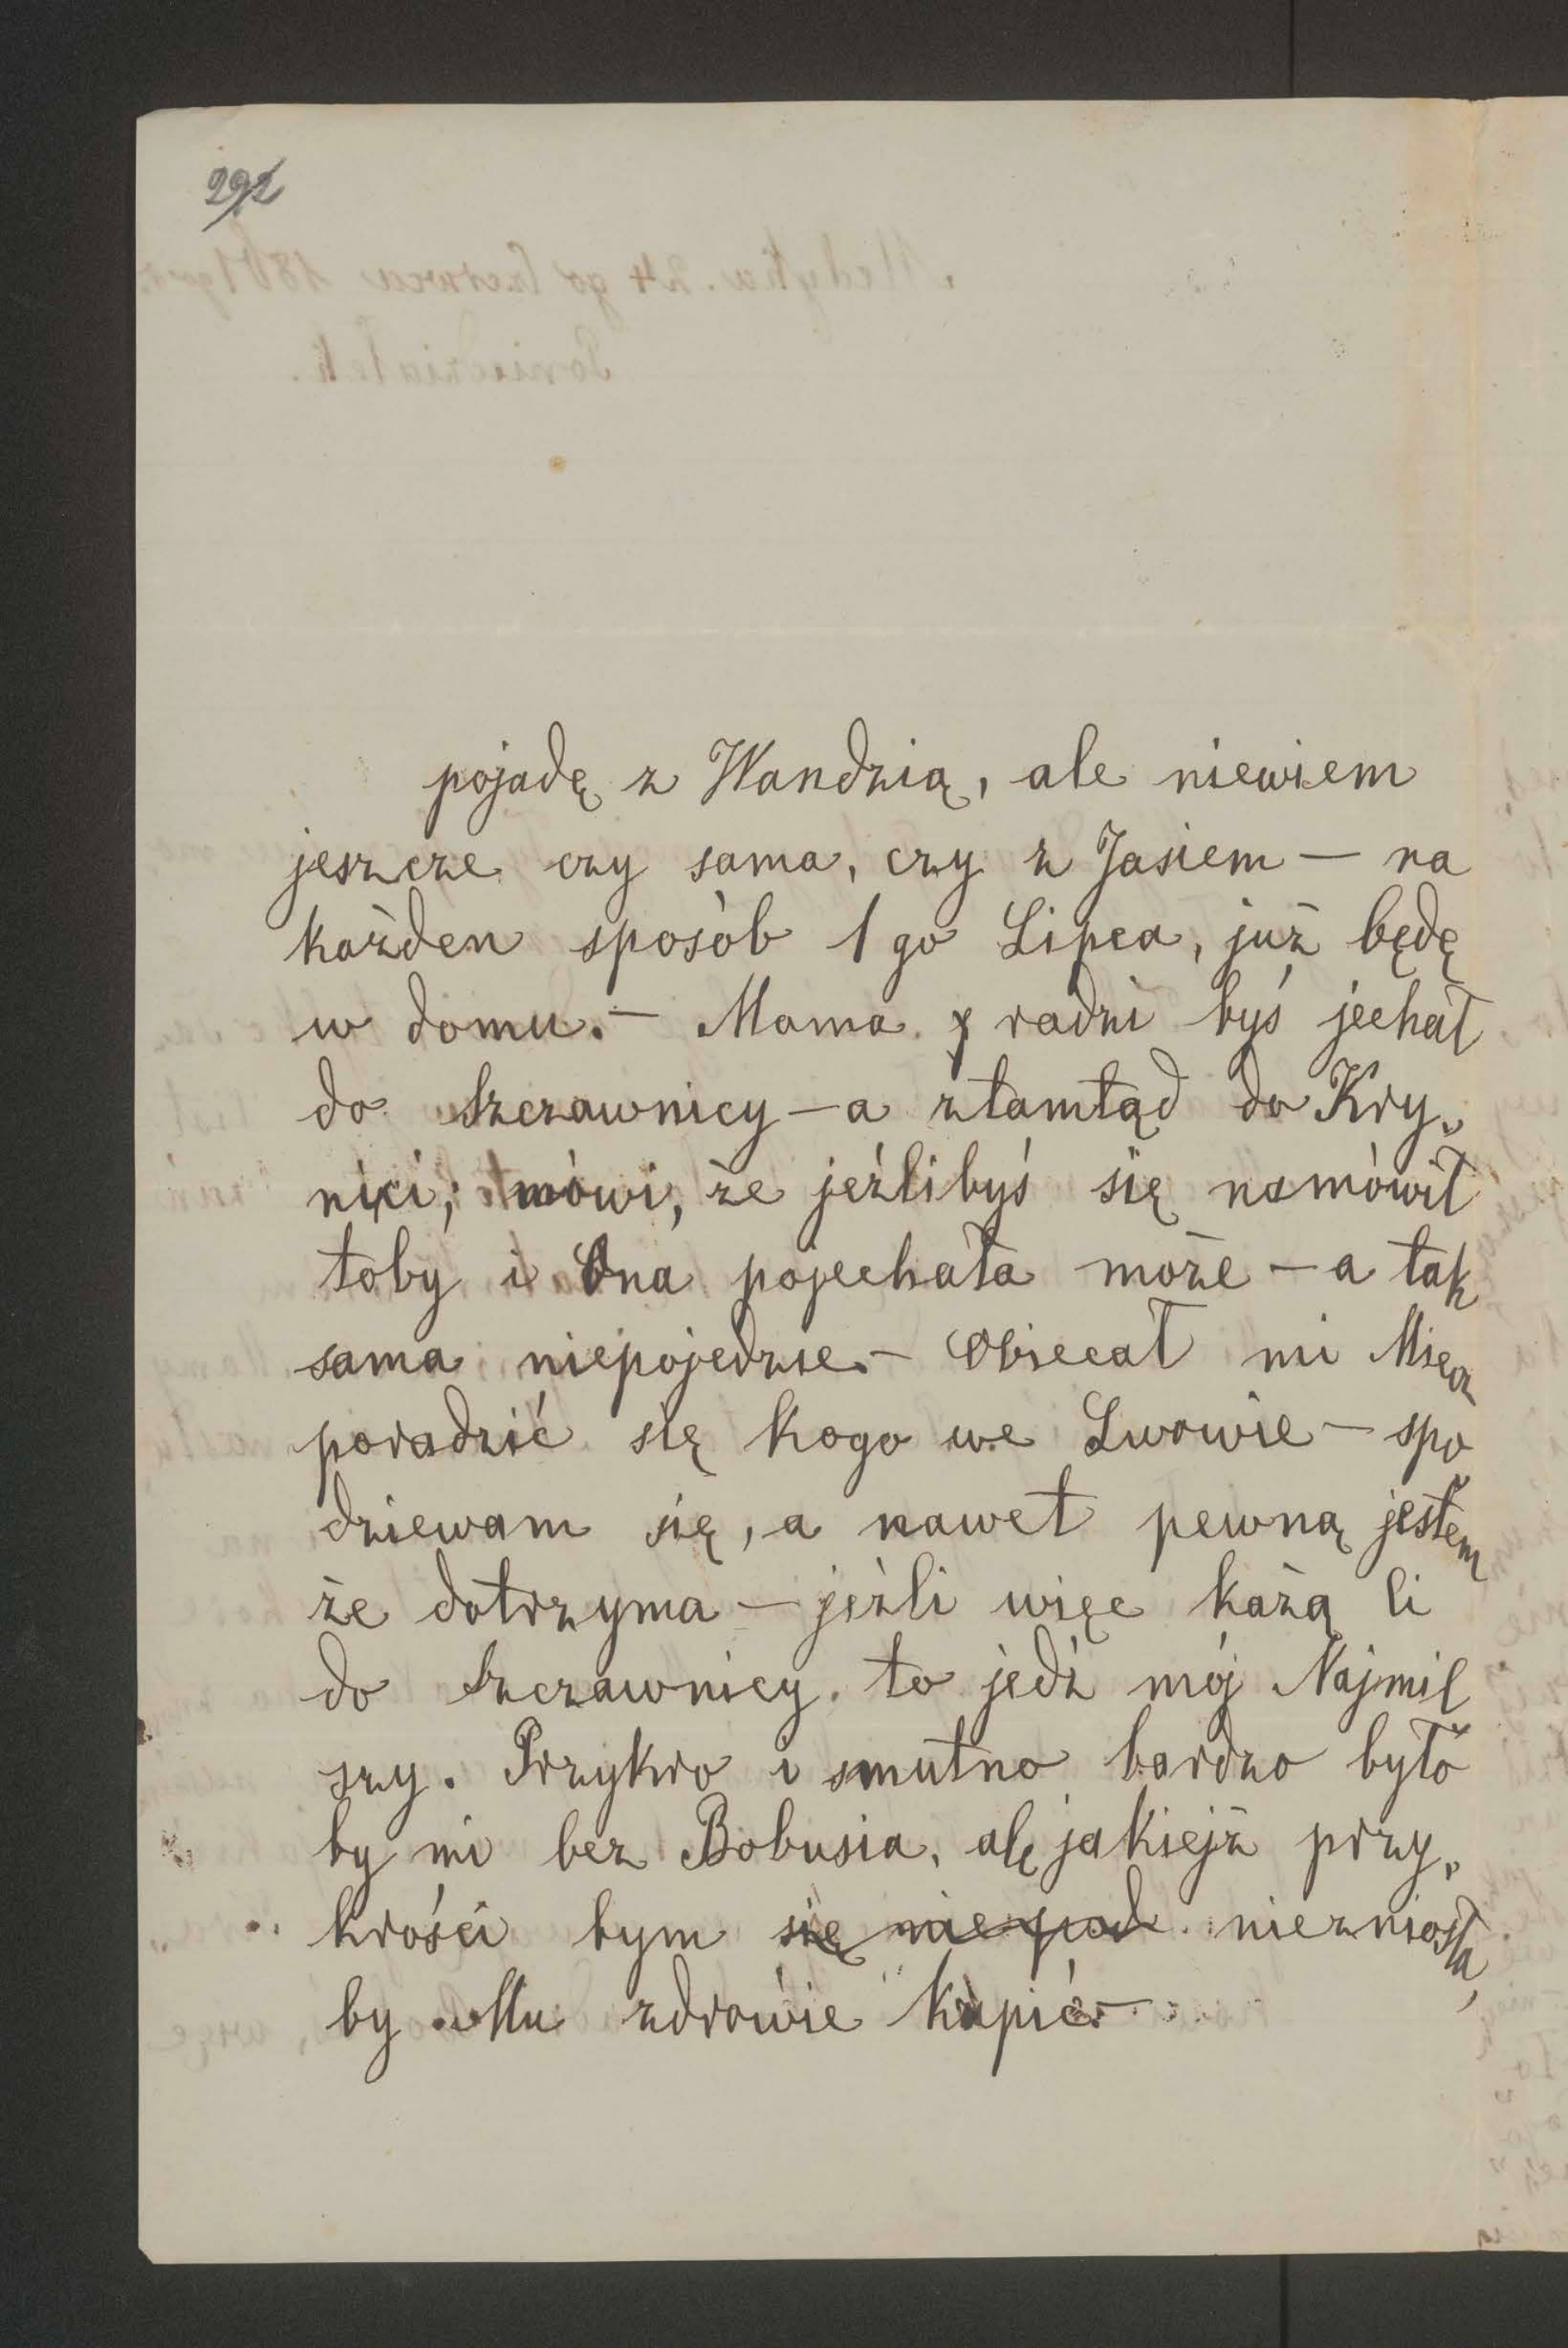 292
pojadę z Wandzią, ale niewiem
jeszcze czy sama, czy z Jasiem — na
każden sposób 1 go Lipca, już będę
w domu. — Mama radzi byś jechał
do Szczawnicy — a ztamtąd do Kry„
nici; mówi, że jeźlibyś się namówił
toby i Ona pojechała może — a tak
sama niepojedzie. — Obiecał mi Miecz
poradzić się kogo we Lwowie — spo„
dziewam się, a nawet pewną jestem
że dotrzyma — jeźli więc każą Ci
do Szczawnicy. to jedź mój Najmil„
szy. Przykro i smutno bardzo było„
by mi bez Bobusia, ale jakiejż przy„
krości bym się nie pod niezniosła,
by Mu zdrowie kupić. —